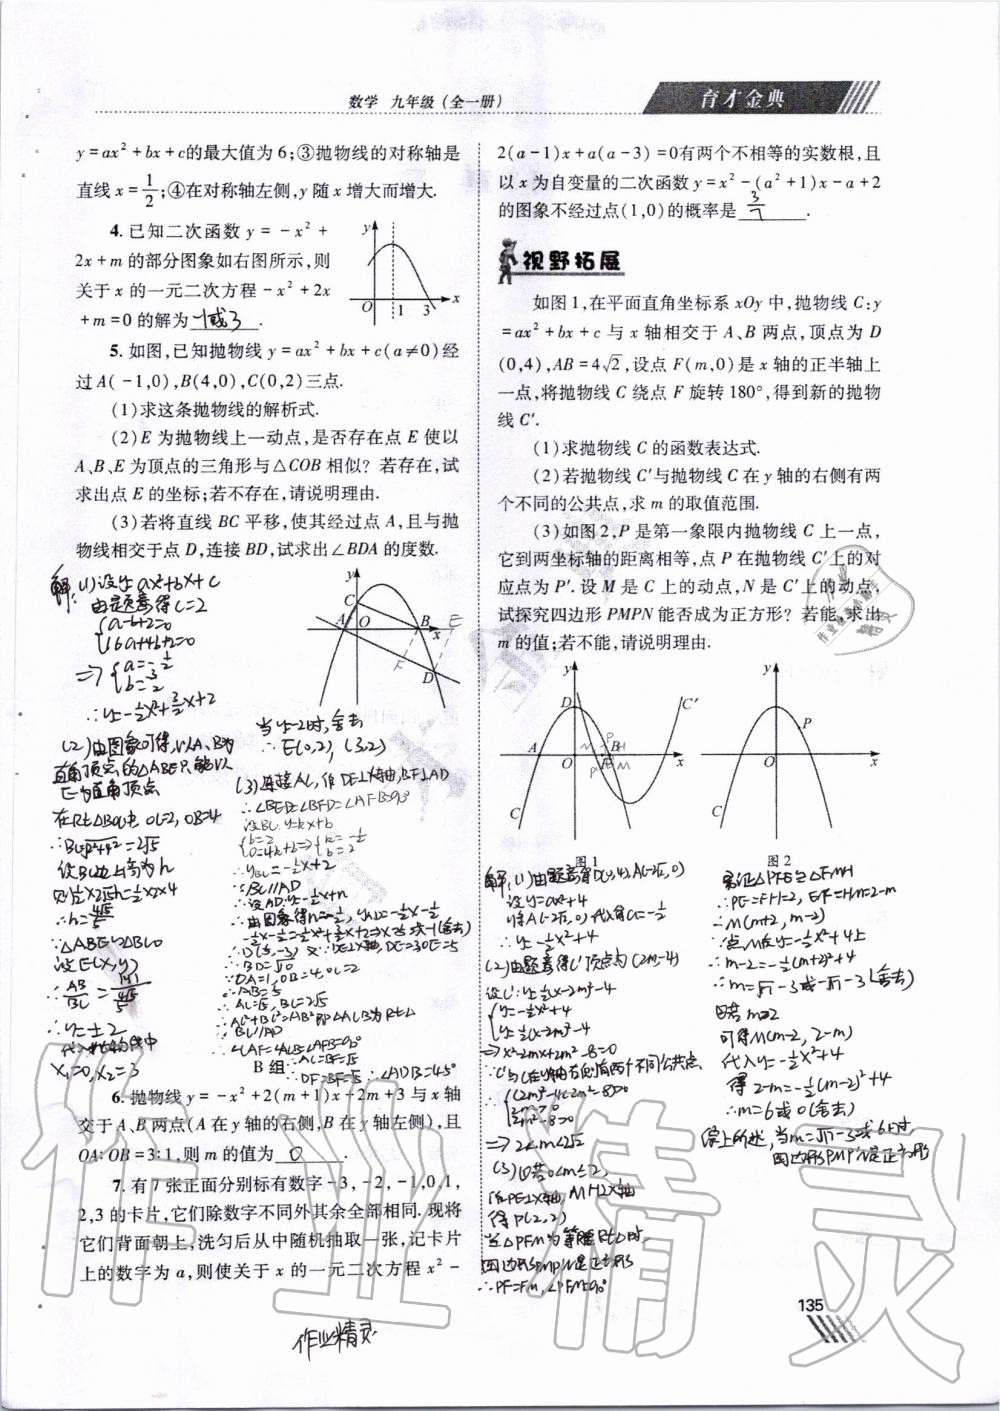 数学 九年级(全一册)
育才金典
y=ax²+bx+c的最大值为6;③抛物线的对称轴是
直线x=1/2;④在对称轴左侧,y随x增大而增大.
4.已知二次函数 y=-x²+
2x+m的部分图象如右图所示,则
关于x的一元二次方程-x²+2x
+m=0的解为 -1或3 .
y
O
1
3
x
5.如图,已知抛物线y=ax²+bx+c(a≠0)经
过A(-1,0),B(4,0),C(0,2)三点.
(1)求这条抛物线的解析式.
(2)E为抛物线上一动点,是否存在点E使以
A、B、E为顶点的三角形与△COB相似?若存在,试
求出点E的坐标;若不存在,请说明理由.
(3)若将直线BC平移,使其经过点A,且与抛
物线相交于点D,连接BD,试求出∠BDA的度数.
解:(1)设y=ax²+bx+c
由题意得c=2
{a-b+2=0
{16a+4b+2=0
⇒{a=-1/2
{b=3/2
∴y=-1/2x²+3/2x+2
(2)由图象可得,以A、B为
直角顶点的△ABE不能以
E为直角顶点
在Rt△BOC中,OC=2,OB=4
∴BC=√2²+4²=2√5
设BC边上高为h
则1/2×2√5h=1/2×2×4
∴h=4√5/5
∵△ABE∽△BCO
设E(x,y)
∴y=±2
x₁=0,x₂=3
y
C
A
O
B
E
x
F
D
当y=-2时,舍去
∴E(0,2),(3,2)
(3)连接AC,作DE⊥x轴,BF⊥AD
∴∠BED=∠BFD=∠AFB=90°
设BC:y=kx+b
{b=2
{0=4k+b⇒{k=-1/2
{b=2
∴yBC=-1/2x+2
∵BC//AD
∴设AD:y=-1/2x+n
∴AB=5
∴AC=√5,BC=2√5
∴AC²+BC²=AB²即△ACB为Rt△
∵BC//AD
∴∠CAF=∠ACB=∠AFB=90°
∴AC=BF=√5
∴DF=BF=√5 ∴∠ADB=45°
B 组
6.抛物线y=-x²+2(m+1)x-2m+3与x轴
交于A、B两点(A在y轴的右侧,B在y轴左侧),且
OA:OB=3:1,则m的值为 0 .
7.有7张正面分别标有数字-3,-2,-1,0,1,
2,3的卡片,它们除数字不同外其余全部相同.现将
它们背面朝上,洗匀后从中随机抽取一张,记卡片
上的数字为a,则使关于x的一元二次方程x²-
2(a-1)x+a(a-3)=0有两个不相等的实数根,且
以x为自变量的二次函数y=x²-(a²+1)x-a+2
的图象不经过点(1,0)的概率是 3/7 .
视野拓展
如图1,在平面直角坐标系xOy中,抛物线C:y
=ax²+bx+c与x轴相交于A、B两点,顶点为D
(0,4),AB=4√2,设点F(m,0)是x轴的正半轴上
一点,将抛物线C绕点F旋转180°,得到新的抛物
线C′.
(1)求抛物线C的函数表达式.
(2)若抛物线C′与抛物线C在y轴的右侧有两
个不同的公共点,求m的取值范围.
(3)如图2,P是第一象限内抛物线C上一点,
它到两坐标轴的距离相等,点P在抛物线C′上的对
应点为P′.设M是C上的动点,N是C′上的动点,
试探究四边形PMP′N能否成为正方形?若能,求出
m的值;若不能,请说明理由.
y
D
C′
A
O
B
x
C
图1
y
P
O
x
C
图2
解:(1)由题意得D(0,4),A(-2√2,0)
设y=ax²+4
将A(-2√2,0)代入得a=-1/2
∴y=-1/2x²+4
(2)由题意得C′顶点为(2m,-4)
设C′:y=1/2(x-2m)²-4
{y=-1/2x²+4
{y=1/2(x-2m)²-4
⇒x²-2mx+2m²-8=0
∵C′与C在y轴右侧有两个不同公共点
∴{(2m)²-4(2m²-8)>0
{2m>0
{2m²-8>0
⇒2<m<2√2
(3)①若0<m≤2,
作PE⊥x轴,MH⊥x轴
得P(2,2)
当△PFM为等腰Rt△时,
四边形PMP′N是正方形
∴PF=FM,∠PFM=90°
易证△PFE≌△FMH
∴PE=FH=2,EF=HM=2-m
∴M(m+2,m-2)
∵点M在y=-1/2x²+4上
∴m-2=-1/2(m+2)²+4
∴m=√17-3或-√17-3(舍去)
②若m>2
可得M(m-2,2-m)
代入y=-1/2x²+4
得2-m=-1/2(m-2)²+4
∴m=6或0(舍去)
综上所述,当m=√17-3或6时,
四边形PMP′N是正方形
作业精灵
作业精灵
135